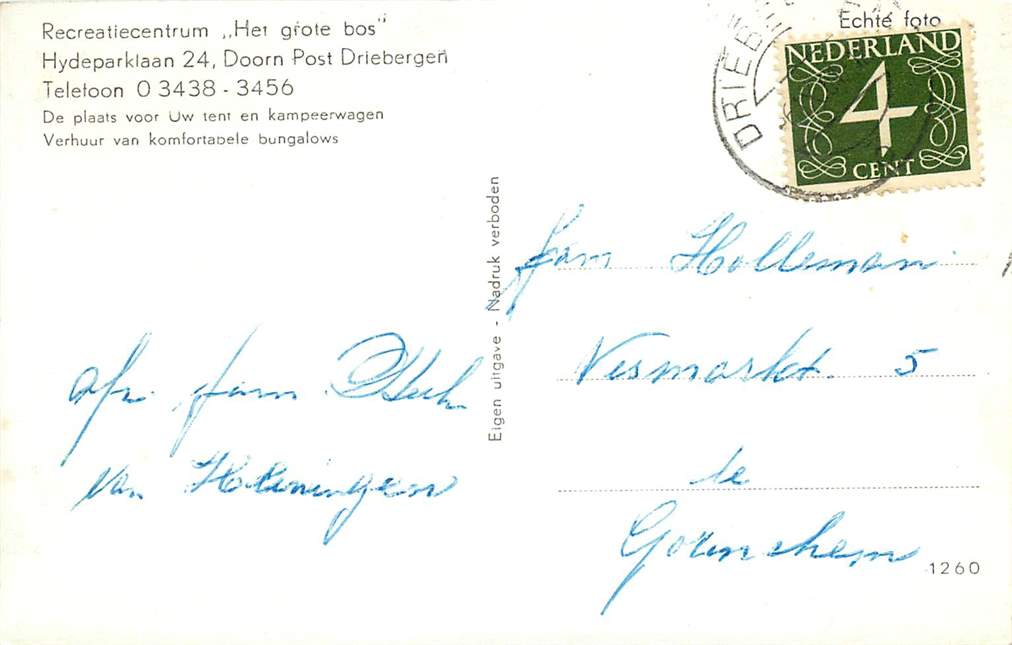 Recreatiecentrum „Het grote bos"
Hydeparklaan 24, Doorn Post Driebergen
Telefoon 0 3438 - 3456
De plaats voor Uw tent en kampeerwagen
Verhuur van komfortabele bungalows
Echte foto
NEDERLAND
4
CENT
DRIEB
Eigen uitgave - Nadruk verboden
fam Holleman
Vismarkt 5
te
Gorinchem
afz. fam
van
1260